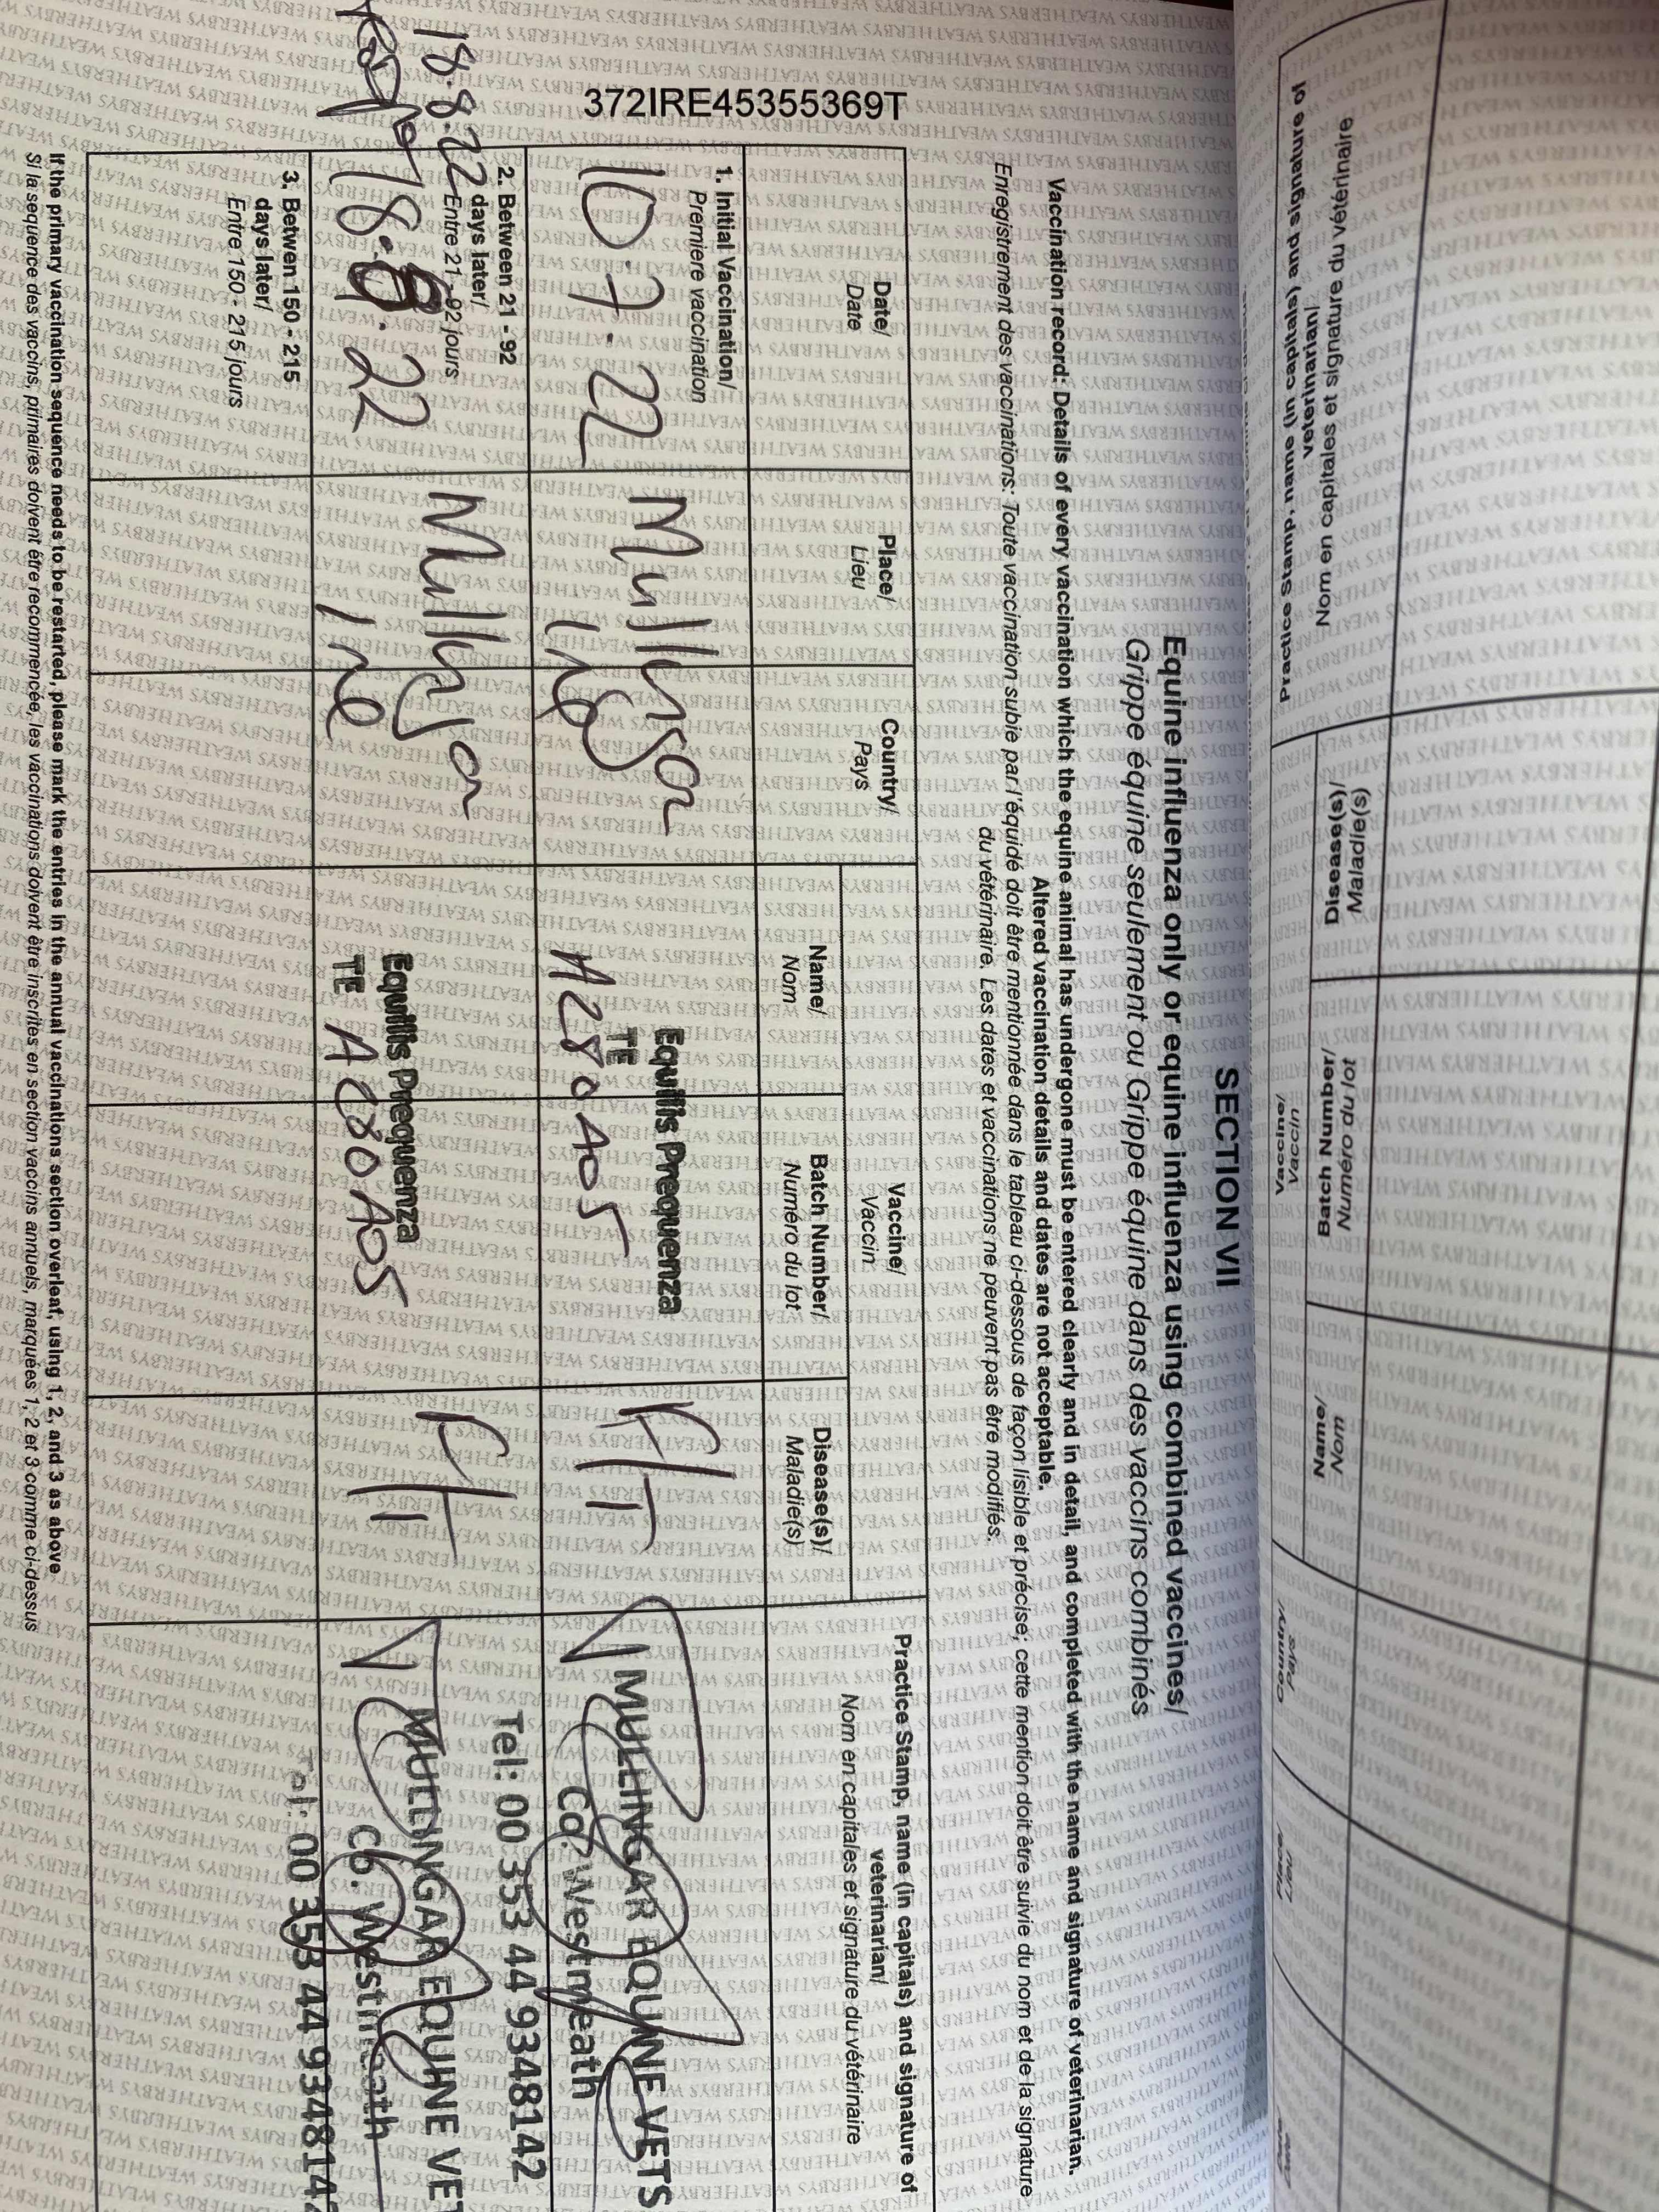 372IRE45355369T
SECTION VII
Equine influenza only or equine influenza using combined vaccines/
Grippe équine seulement ou Grippe équine dans des vaccins combinés
Vaccination record: Details of every vaccination which the equine animal has undergone must be entered clearly and in detail, and completed with the name and signature of veterinarian.
Altered vaccination details and dates are not acceptable.
Enregistrement des vaccinations: Toute vaccination subie par l'équidé doit être mentionnée dans le tableau ci-dessous de façon lisible et précise; cette mention doit être suivie du nom et de la signature
du vétérinaire. Les dates et vaccinations ne peuvent pas être modifiés.
Date/
Date
Place/
Lieu
Country/
Pays
Vaccine/
Vaccin
Name/
Nom
Batch Number/
Numéro du lot
Disease(s)/
Maladie(s)
Practice Stamp, name (in capitals) and signature of
veterinarian/
Nom en capitales et signature du vétérinaire
1. Initial Vaccination/
Premiere vaccination
10.7.22
Mullingar
Equilis Prequenza
TE
A280A05
F/T
MULLINGAR EQUINE VETS
Co. Westmeath
Tel: 00 353 44 9348142
2. Between 21 - 92
days later/
Entre 21 - 92 jours
18.8.22
18. 22
Mullingar
Ire
Equilis Prequenza
TE
A280A05
F/T
MULLINGAR EQUINE VET
Co. Westmeath
Tel: 00 353 44 934814
3. Betwen 150 - 215
days later/
Entre 150 - 215 jours
If the primary vaccination sequence needs to be restarted, please mark the entries in the annual vaccinations section overleaf, using 1, 2, and 3 as above
Si la séquence des vaccins primaires doivent être recommencée, les vaccinations doivent être inscrites en section vaccins annuels, marquées 1, 2 et 3 comme ci-dessus
Practice Stamp, name (in capitals) and signature of
veterinarian/
Nom en capitales et signature du vétérinaire
Disease(s)/
Maladie(s)
Batch Number/
Numéro du lot
Vaccine/
Vaccin
Name/
Nom
Country/
Pays
Place/
Lieu